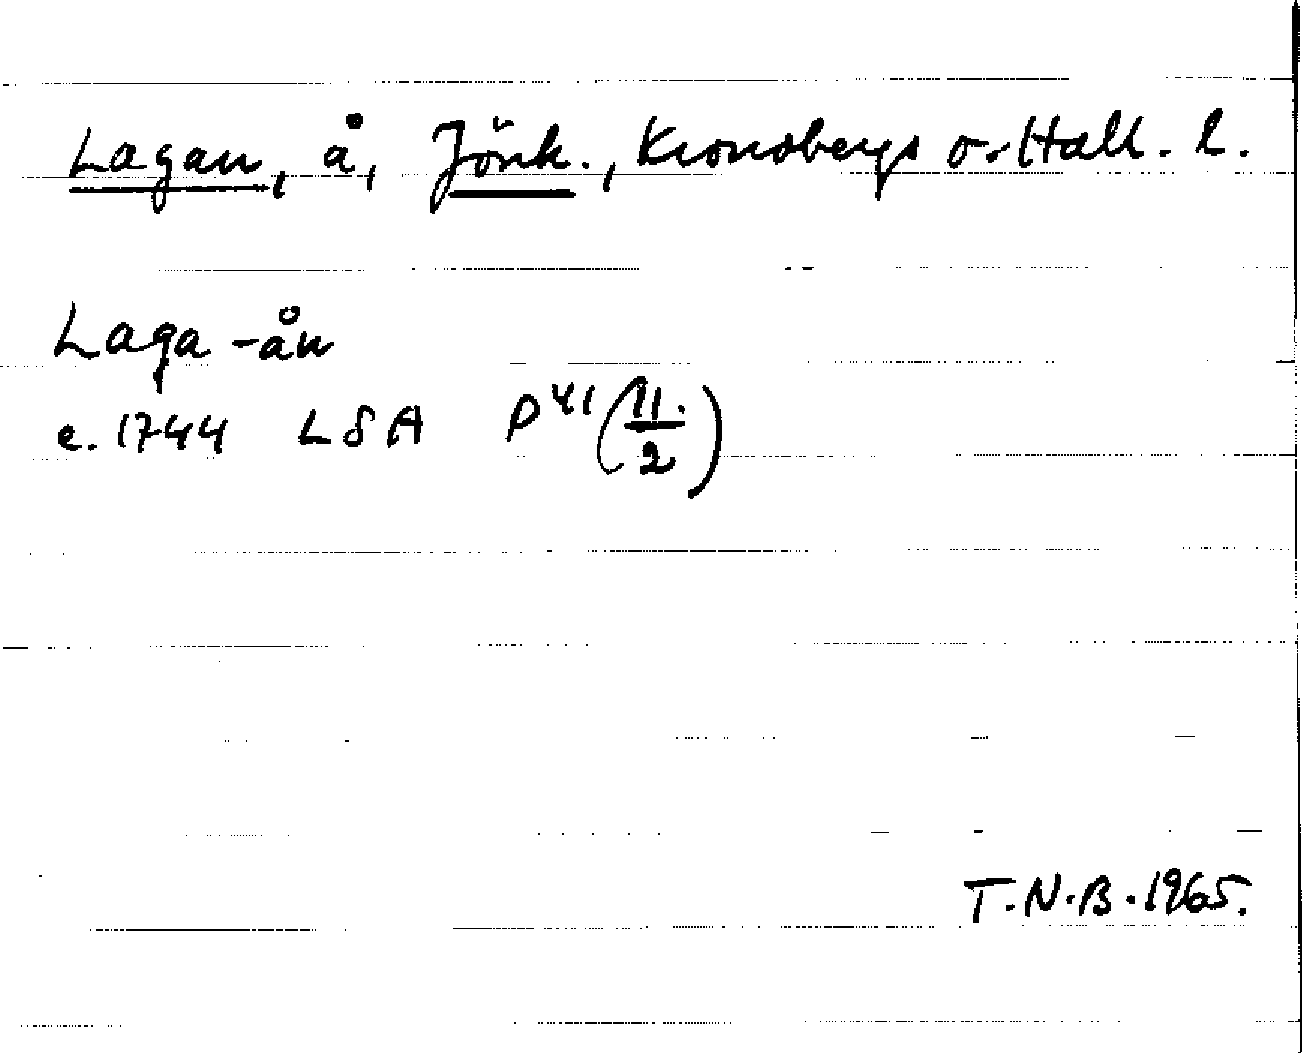 Lagan, å, Jönk., Kronobergs o. Hall. l.
Laga-ån
c. 1744 LSA P41 (11./2)
T.N.B. 1965.